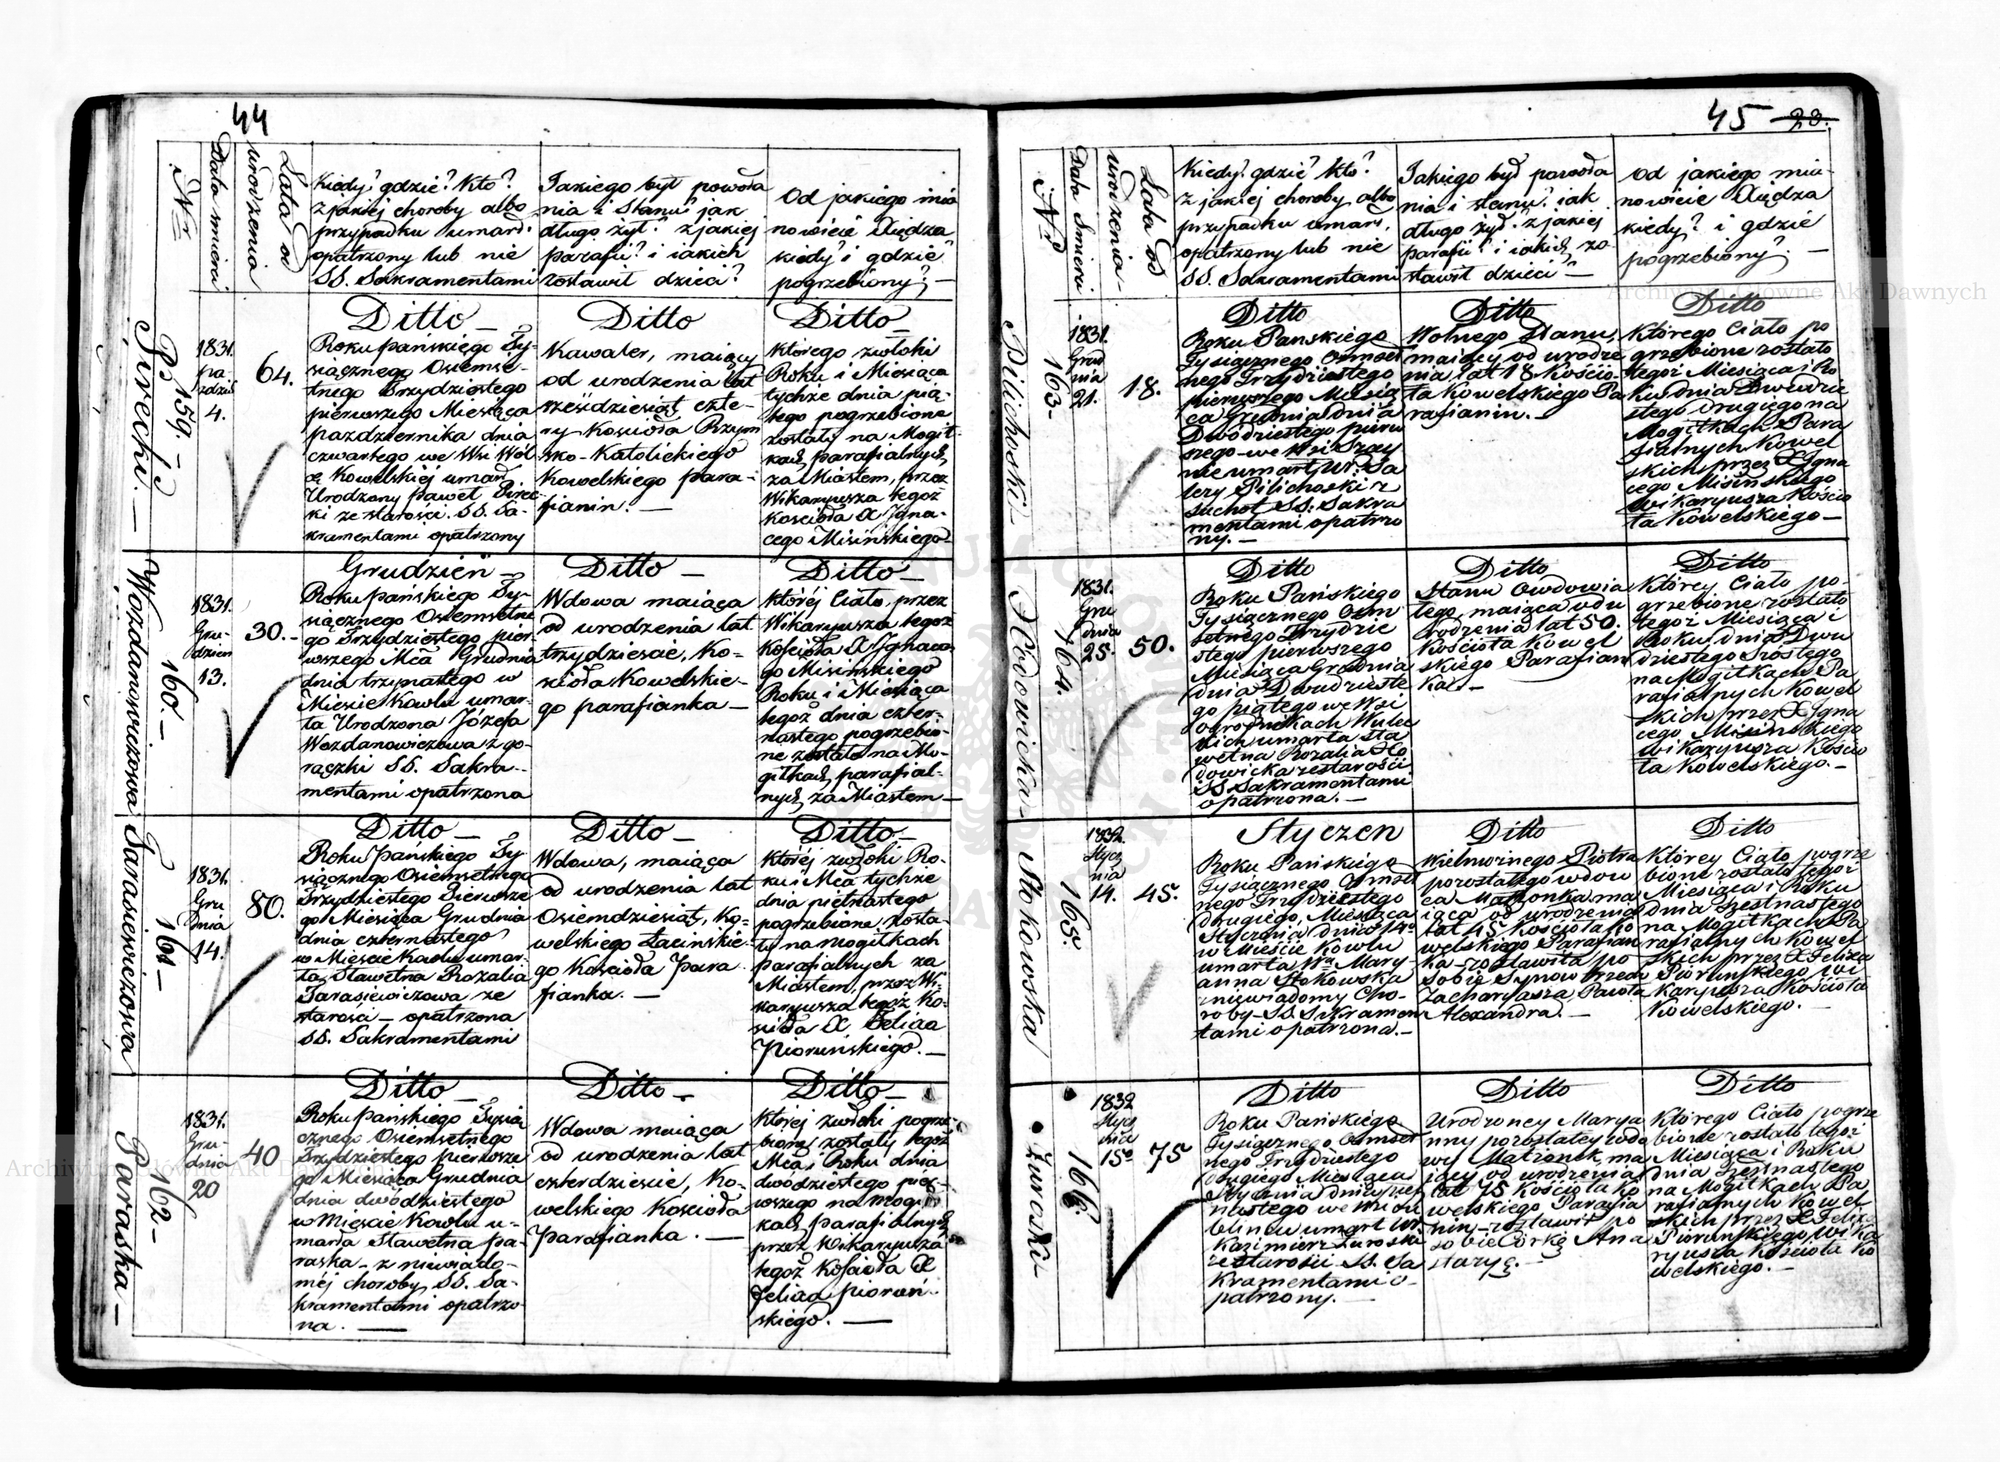 44
Nr
Data śmierci
Lata od
urodzenia
Kiedy? gdzie? Kto?
z jakiej choroby albo
przypadku umarł.
opatrzony lub nie
SS. Sakramentami
Jakiego był powoła
nia i Stanu? jak
długo żył? z jakiej
parafii? i iakich
zostawił dzieci?
Od jakiego mia
nowicie Xiędza
kiedy? i gdzie
pogrzebiony? —
159. —
1831.
4.
64.
Ditto —
Roku Pańskiego Ty-
siącznego Osiemse-
tnego Trzydziestego
pierwszego Miesiąca
pazdziernika dnia
czwartego we Wsi Wól
ce Kowelskiéj umarł
Urodzony Paweł
ki ze starości. SS. Sa-
kramentami opatrzony
Ditto
Kawaler, maiący
od urodzenia lat
sześćdziesiąt czte-
ry Kościoła Rzym
sko-Katolickiego
Kowelskiego para-
fianin. —
Ditto —
którego zwłoki
Roku i Miesiąca
tychże dnia pią-
tego pogrzebione
zostały na Mogił-
kach parafialnych,
za Miastem, przez
Wikaryusza tegoż
kościoła X Igna-
cego Misińskiego
Wozdanowiczowa
160 —
1831.
Gru-
dzień
13.
30. —
Grudzień —
Roku Pańskiego Ty-
siącznego Osiemsetne
go Trzydziestego pier
wszego Mca Grudnia
dnia trzynastego w
Mieście Kowlu umar-
ła Urodzona Józefa
Wozdanowiczowa z go-
rączki SS. Sakra-
mentami opatrzona
Ditto —
Wdowa maiąca
od urodzenia lat
trzydzieście, Ko-
ścioła Kowelskie-
go parafianka —
Ditto —
któréj Ciało, przez
Wikaryusza tegoż
Kościoła X Ignace
go Misińskiego
Roku i Miesiąca
tegoż dnia czter-
nastego pogrzebio-
ne zostało na Mo-
giłkach parafial-
nych, za Miastem —
Tarasiewiczowa
161 —
1831.
Gru
Dnia
14.
80.
Ditto —
Roku Pańskiego Ty
siącznego Osiemsetnego
Trzydziestego Pierwsze
go Miesiąca Grudnia
dnia czternastego
w Mieście Kowlu umar
ła, Sławetna Rozalia
Tarasiewiczowa ze
starości — opatrzona
SS. Sakramentami
Ditto —
Wdowa, maiąca
od urodzenia lat
Osiemdziesiąt, Ko-
welskiego Łacińskie
go Kościoła Para
fianka. —
Ditto —
któréj zwłoki Ro-
ku i Mca tychże
dnia piętnastego
pogrzebione zosta-
ły na mogiłkach
parafialnych za
Miastem, przez Wi-
karyusza tegoż Ko-
ścioła X Felixa
Piorunskiego. —
Paraska —
162 —
1831.
Gru-
dnia
20
40
Ditto —
Roku Pańskiego Tysią
cznego Osiemsetnego
Trzydziestego pierwsze
go Miesiąca Grudnia
dnia dwódziestego
w Mieście Kowlu u-
marła Sławetna Pa-
raska — z niewiado-
méj choroby SS. Sa-
kramentami opatrzo-
na. —
Ditto —
Wdowa maiąca
od urodzenia lat
czterdzieście, Ko-
welskiego Kościoła
Parafianka. —
Ditto —
któréj zwłoki pogrze-
bione zostały tegoż
Mca i Roku dnia
dwódziestego pier-
wszego na mogił
kach parafialnych
przez Wikaryusza
tegoż Kościoła X
Felixa Pioruń-
skiego. —
45 23.
Nr
Data Smierci
Lata od
urodzenia
Kiedy? gdzie? kto?
z jakiej choroby albo
przypadku umarł,
opatrzony lub nie
SS. Sakramentami
Jakiego był powoła
nia i stanu? iak
długo żył? z jakiej
parafii? i iakich zo-
stawił dzieci? —
od jakiego mia-
nowicie Xiędza
kiedy? i gdzie
pogrzebiony? —
Pilichoski —
163 —
1831.
Grud
nia
21.
18.
Ditto
Roku Panskiego
Tysiącznego Ośmset
nego Trzydziestego
pierwszego Miesią
ca Grudnia dnia
Dwódziestego pierw
szego we Wsi
nie umarł, Ur: Wa
lery Pilichoski z
suchot SS. Sakra
mentami opatrzo
ny. —
Ditto
Wolnego Stanu,
maiący od urodze
nia lat 18. Kościo-
ła Kowelskiego Pa
rafianin. —
Ditto
Którego Ciało po
grzebione zostało
tegoż Miesiąca i Ro
ku dnia Dwudzie
stego drugiego na
Mogiłkach Para
fialnych Kowel
skich przez X Igna
cego Misińskiego
Wikaryusza Kościo
ła Kowelskiego —
164.
1831.
Gru
dnia
25.
50.
Ditto
Roku Pańskiego
Tysiącznego Ośm
setnego Trzydzie
stego pierwszego
Miesiąca Grudnia
dnia Dwudzieste
go piątego we Wsi
umarła Sła
wetna Rozalia
dowicka ze starości
SS. Sakramentami
opatrzona. —
Ditto
Stanu Owdowia
łego, maiąca od u
rodzenia lat 50.
Kościoła Kowel
skiego Parafian
ka. —
Ditto
Którey Ciało po-
grzebione zostało
tegoż Miesiąca i
Roku dnia Dwu
dziestego szóstego
na Mogiłkach Pa
rafialnych Kowel
skich przez X Igna
cego Misińskiego
Wikaryusza Kościo
ła Kowelskiego. —
Stokowska
165.
1832.
Stycz
nia
14.
45.
Styczen
Roku Pańskiego
Tysiącznego Ośmset
nego Trzydziestego
drugiego, Miesiąca
Stycznia dnia 14go
w Mieście Kowlu
umarła Wna Mary-
anna Stokowska
z niewiadomy Cho-
roby — SS. Sakramen
tami opatrzona. —
Ditto
Wielmożnego Piotra
pozostałego wdow
ca Małżonka ma
iąca od urodzenia
lat 45 Kościoła Ko
welskiego Parafian
ka — zostawiła po
sobie Synów trzech
Zacharyasza Pawła
Alexandra. —
Ditto
Którey Ciało pogrze
bione zostało tegoż
Miesiąca i Roku
dnia szesnastego
na Mogiłkach Pa
rafialnych Kowel
skich przez X Felixa
Piorunskiego Wi
karyusza Kościoła
Kowelskiego. —
Żuroski —
166.
1832
Stycz
nia
15o
75
Ditto
Roku Pańskiego
Tysiącznego Ośmset
nego Trzydziestego
drugiego Miesiąca
Stycznia dnia pięt
nastego we Wsi Lu
blincu umarł Ur.
Kazimierz Żuroski
ze starości SS. Sa
kramentami o-
patrzony. —
Ditto
Urodzoney Marya
nny pozostałey wdo
wy Małżonek, ma
iący od urodzenia
lat 75 Kościoła Ko
welskiego Parafia
nin — zostawił po
sobie Córkę Ana
stazyę. —
Ditto
Którego Ciało pogrze
bione zostało tegoż
Miesiąca i Roku
dnia Szesnastego
na Mogiłkach Pa
rafialnych Kowel
skich przez X Felixa
Piorunskiego Wika
ryusza Kościoła Ko
welskiego. —
Archiwum Główne Akt Dawnych
Archiwum Główne Akt Dawnych